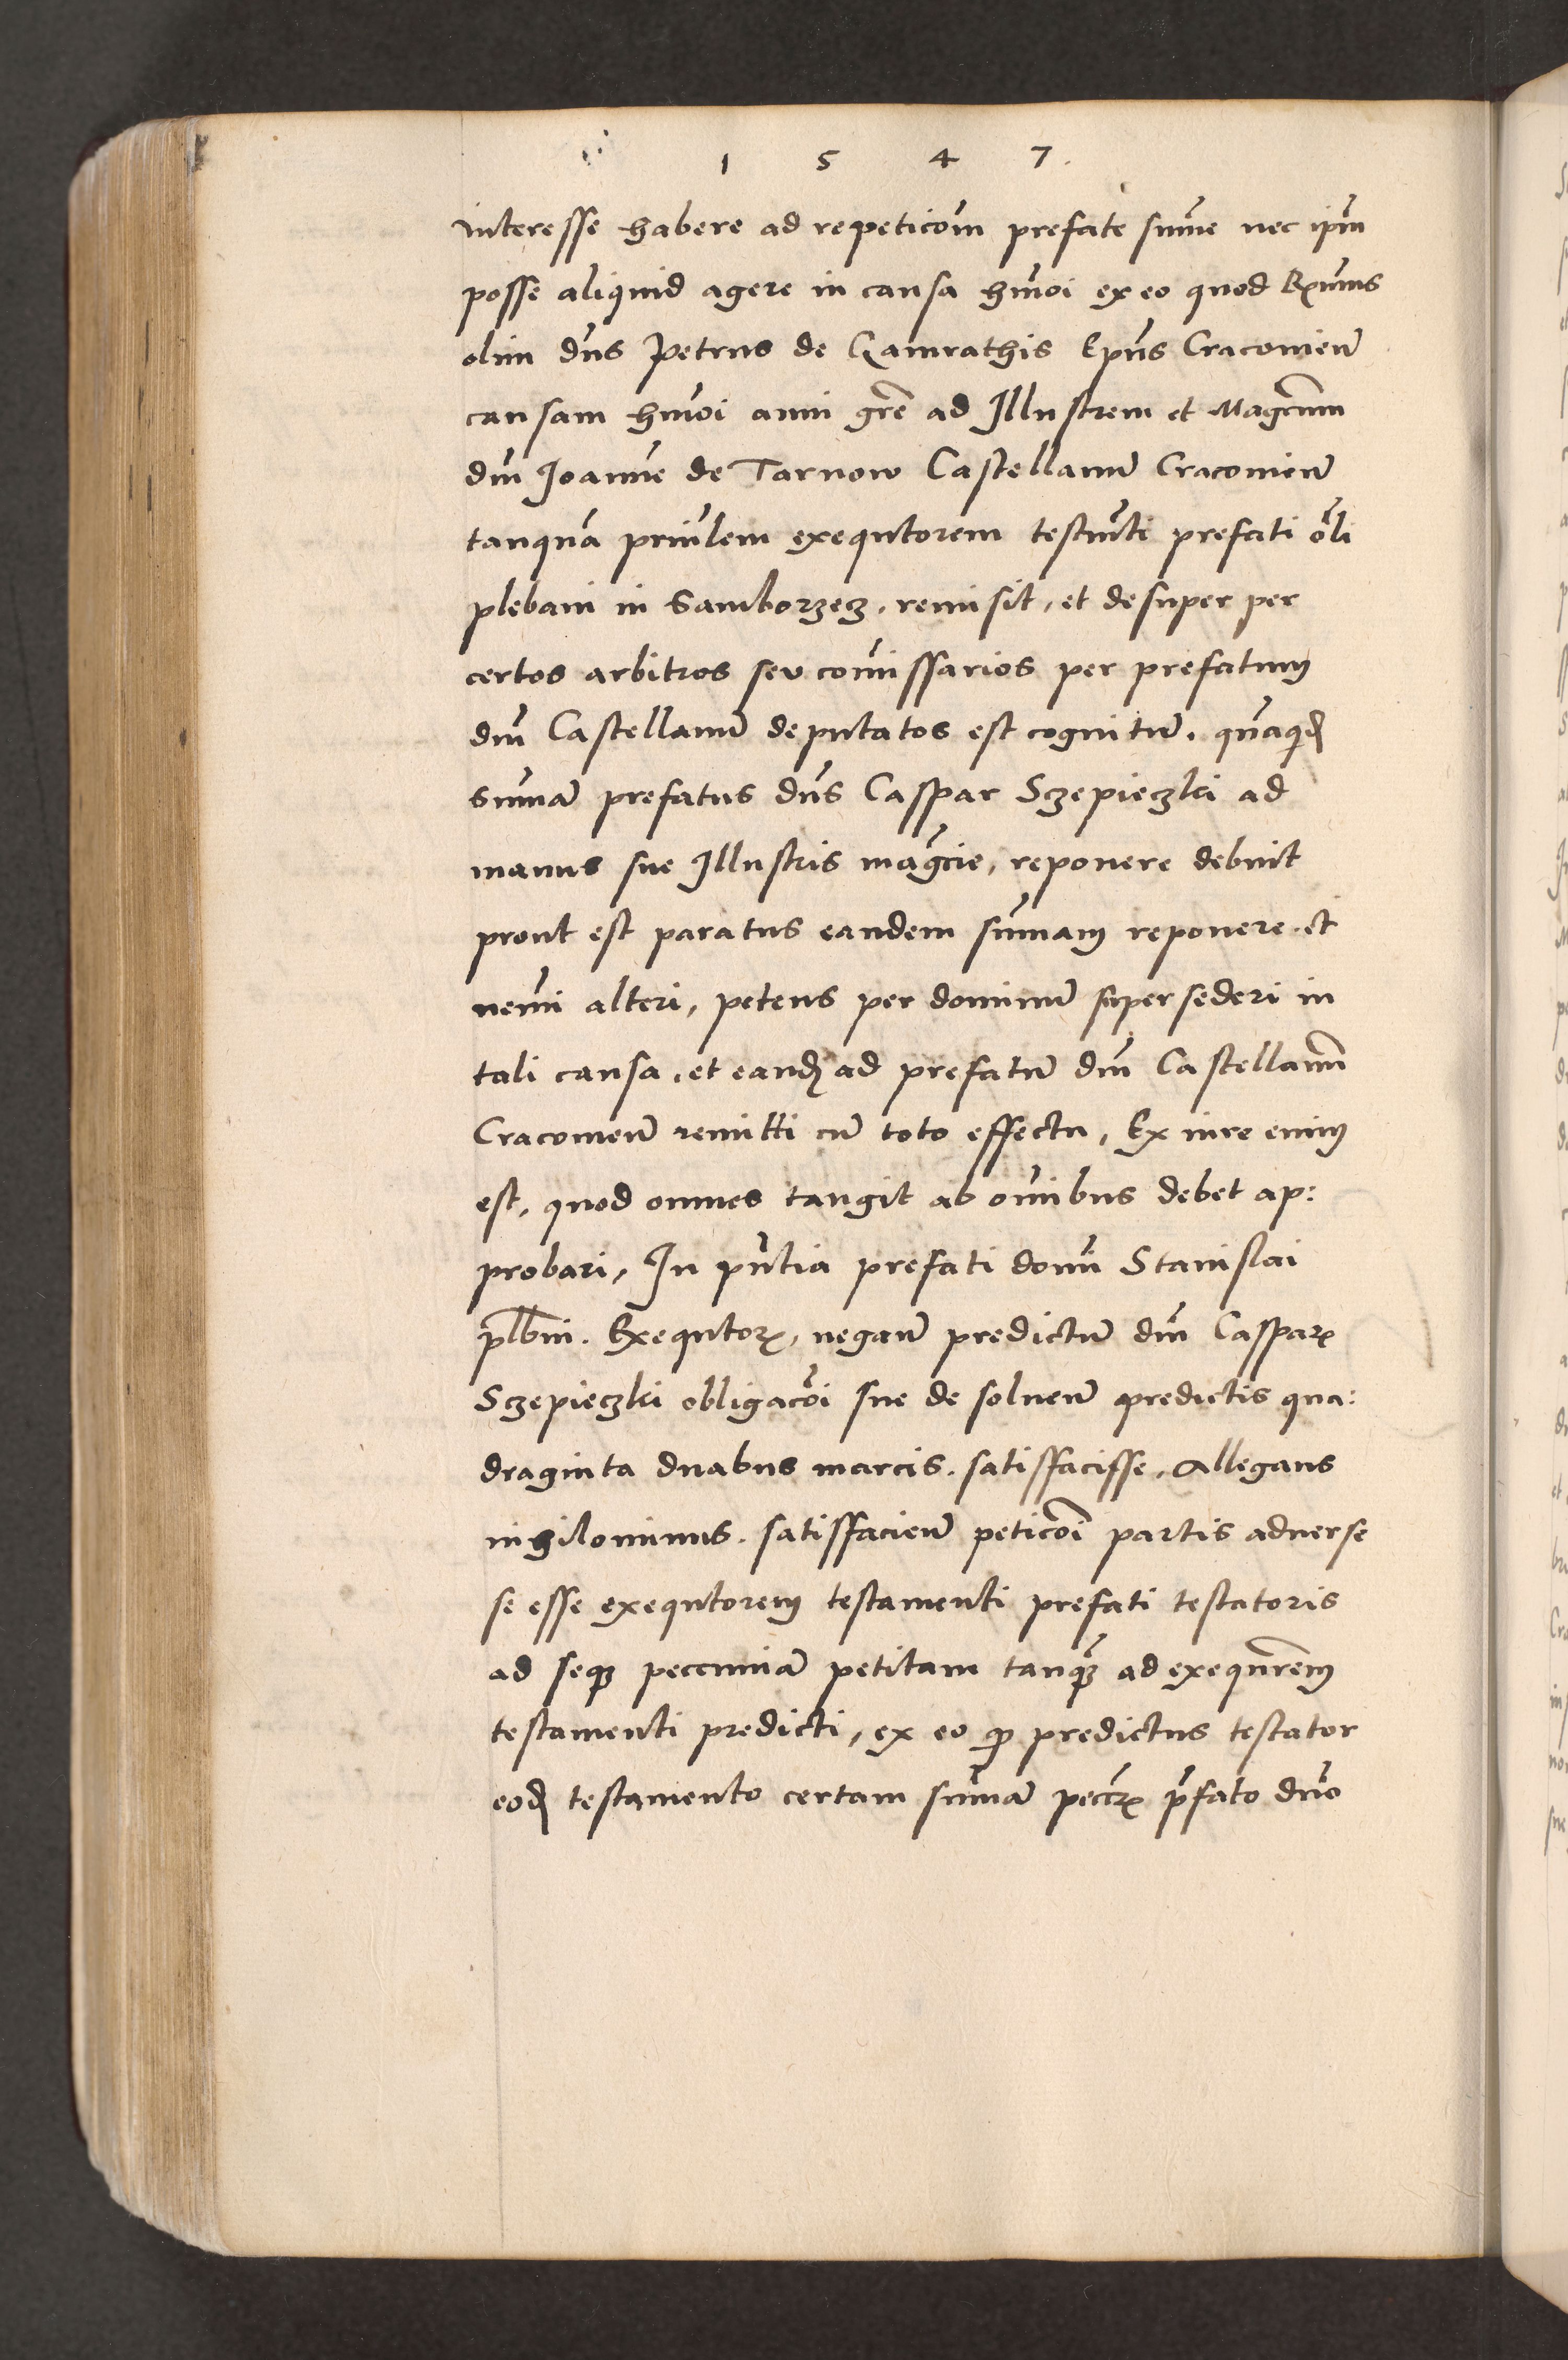 1 5 4 7.
interesse habere ad repeticõm prefate sum̃e nec ip̃m
posse aliquid agere in causa hm̃oi ex eo quod R͂xmus
olim dñs Petrus de Gamrathis Ep̃us Cracouieñ
causam hm̃oi anni gr̃e ad Illustrem et Magcum
dm̃ Joanne de Tarnow Castellanũ Cracouieñ
tanquã prin̄lem exequtorem testm̃ti prefati oĩi
plebani in Samborzecz. remisit, et desuper per
certos arbitros seu com̃issarios per prefatum
dm̃ Castellanũ deputatos est cognitũ. quãqid̃
sum̃ã prefatus dñs Caspar Sczepieczki ad
manus sue Illustris mag̃cie, reponere debuit
prout est paratus eandem sum̃am reponere. et
nem̃i alteri, petens per dominũ supersederi in
tali causa. et eand̃ ad prefatũ dm̃ Castellanũ
Cracouieñ remitti cũ toto effectu, Ex iure enim
est, quod omnes tangit ab om̃ibus debet ap:
probari, In pñtia prefati dom̃i Stanislai
plb̃ni. Exequtor̃, negañ predictũ dm̃ Caspar̃
Sczepieczki obligacõi sue de solueñ predictis qua:
draginta duabus marcis. satisfacisse, Allegans
nihilominus. satisfacieñ peticõi partis aduerse
se esse exequtorem testamenti prefati testatoris
ad seqꝫ peccuniã petitam tanqꝫ ad exequt̃rem
testamenti predicti, ex eo qꝫ predictus testator
eod̃ testamento certam sum̃ã pecc̃r̃ p̃fato dño